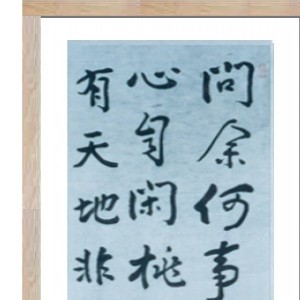 問余何事
心自閑桃
有天地非